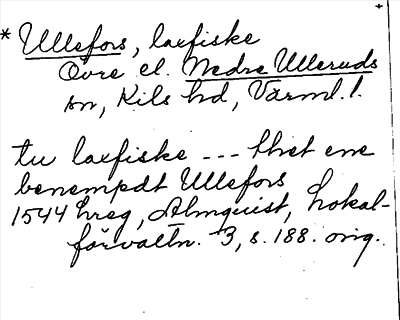 * Ullefors, laxfiske
Övre el. Nedre Ulleruds
sn, Kils hd, Värml. l.
tu laxfiske --- thet ene
benempdt Ullefors
1544 hreg, Almquist, Lokal-
förvaltn. 3, s. 188. orig.